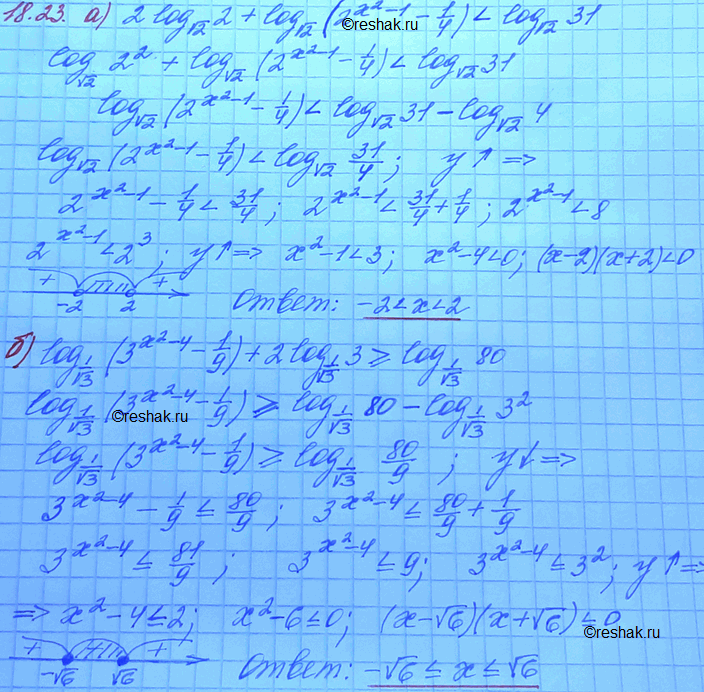 18.23. а) 2 log_√2 2 + log_√2 (2^(x²-1) - 1/4) < log_√2 31
©reshak.ru
log_√2 2² + log_√2 (2^(x²-1) - 1/4) < log_√2 31
log_√2 (2^(x²-1) - 1/4) < log_√2 31 - log_√2 4
log_√2 (2^(x²-1) - 1/4) < log_√2 31/4 ; y ↑ =>
2^(x²-1) - 1/4 < 31/4 ; 2^(x²-1) < 31/4 + 1/4 ; 2^(x²-1) < 8
2^(x²-1) < 2³ ; y ↑ => x² - 1 < 3 ; x² - 4 < 0 ; (x-2)(x+2) < 0
+ +
-2 2 Ответ: -2 < x < 2
б) log_1/√3 (3^(x²-4) - 1/9) + 2 log_1/√3 3 ≥ log_1/√3 80
log_1/√3 (3^(x²-4) - 1/9) ≥ log_1/√3 80 - log_1/√3 3²
©reshak.ru
log_1/√3 (3^(x²-4) - 1/9) ≥ log_1/√3 80/9 ; y ↓ =>
3^(x²-4) - 1/9 ≤ 80/9 ; 3^(x²-4) ≤ 80/9 + 1/9
3^(x²-4) ≤ 81/9 ; 3^(x²-4) ≤ 9 ; 3^(x²-4) ≤ 3² ; y ↑ =>
=> x² - 4 ≤ 2 ; x² - 6 ≤ 0 ; (x-√6)(x+√6) ≤ 0
©reshak.ru
+ +
-√6 √6 Ответ: -√6 ≤ x ≤ √6